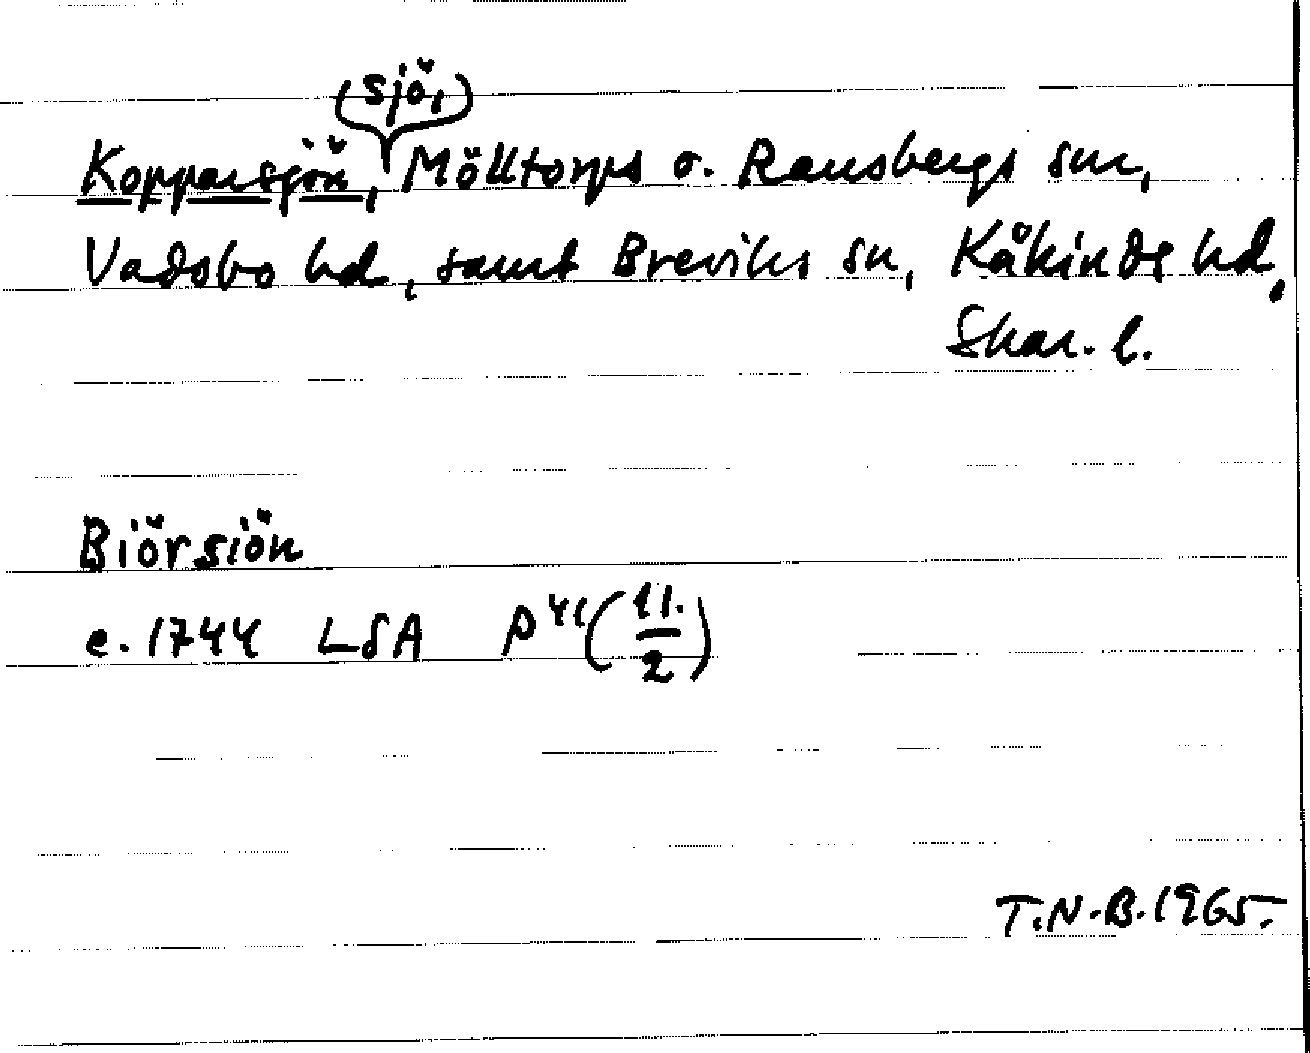 (sjö,)
Kopparsjön, Mölltorps o. Ransbergs snr,
Vadsbo hd, samt Breviks sn, Kåkinds hd,
Skar. l.
Biörsiön
e. 1744 LSA P 41 (11./2)
T.N.B. 1965.